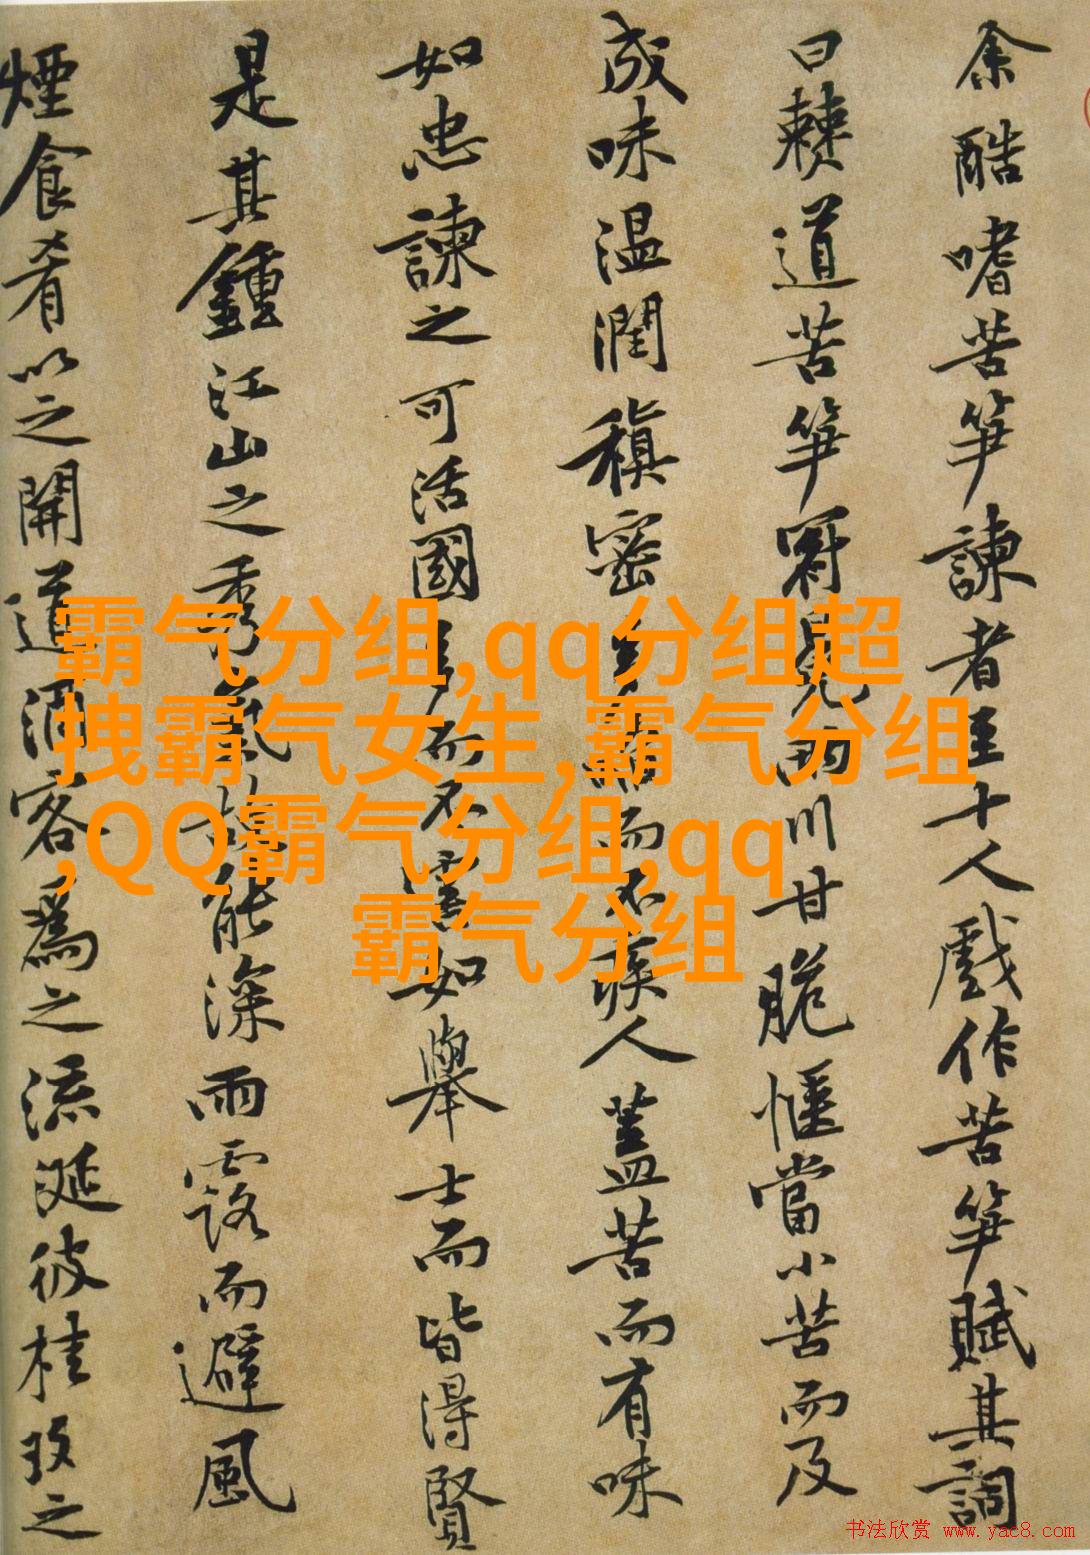 余酷嗜苦笋諫者至十人戲作苦笋賦其詞
曰僰道苦笋冠冕兩川甘脆愜當小苦而及
成味温潤稹密多啗而不疾人蓋苦而有味
如忠諫之可活國多而不害如舉士而皆得賢
是其鍾江山之秀氣故能深雨露而避風
煙食肴以之開道酒客爲之流涎彼桂玫之
霸气分组,qq分组超
拽霸气女生,霸气分组
,QQ霸气分组,qq
霸气分组
书法欣赏 www.yac8.com